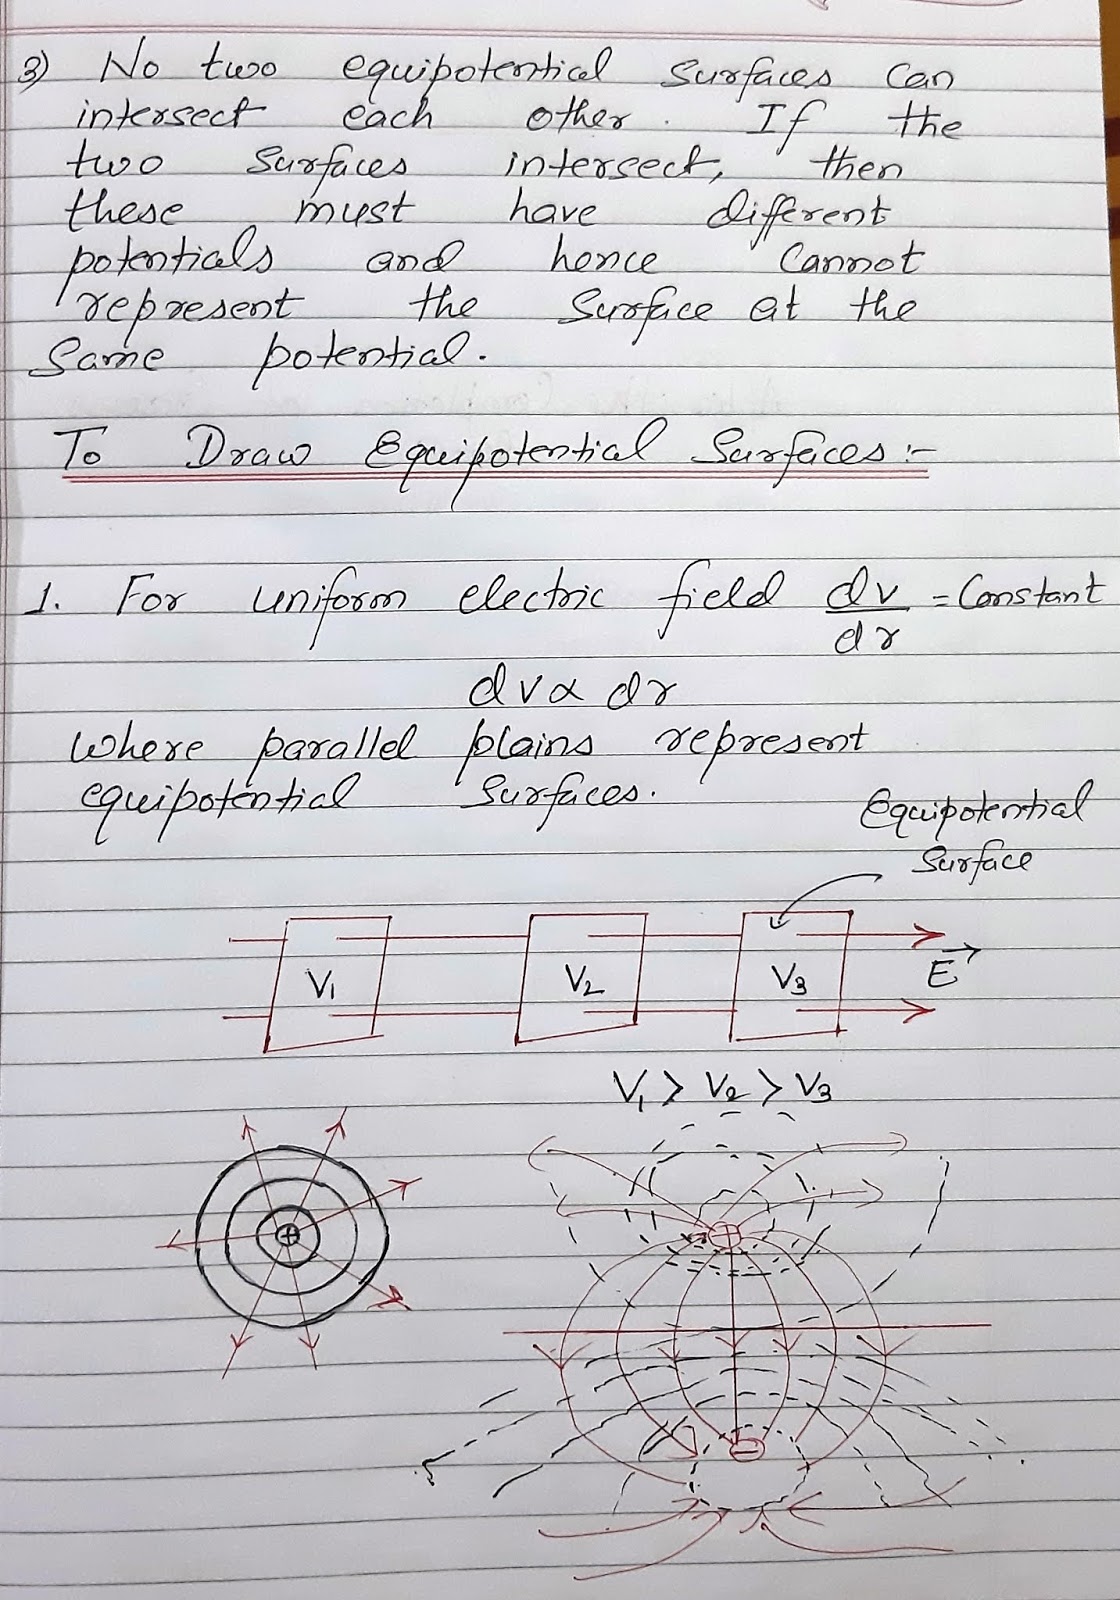 3) No two equipotential surfaces can
intersect each other. If the
two surfaces intersect, then
these must have different
potentials and hence cannot
represent the surface at the
same potential.
To Draw Equipotential Surfaces :-
1. For uniform electric field dv/dr = Constant
dv ∝ dr
where parallel plains represent
equipotential surfaces.
Equipotential
Surface
V₁ V₂ V₃ E⃗
V₁ > V₂ > V₃
+ +
−